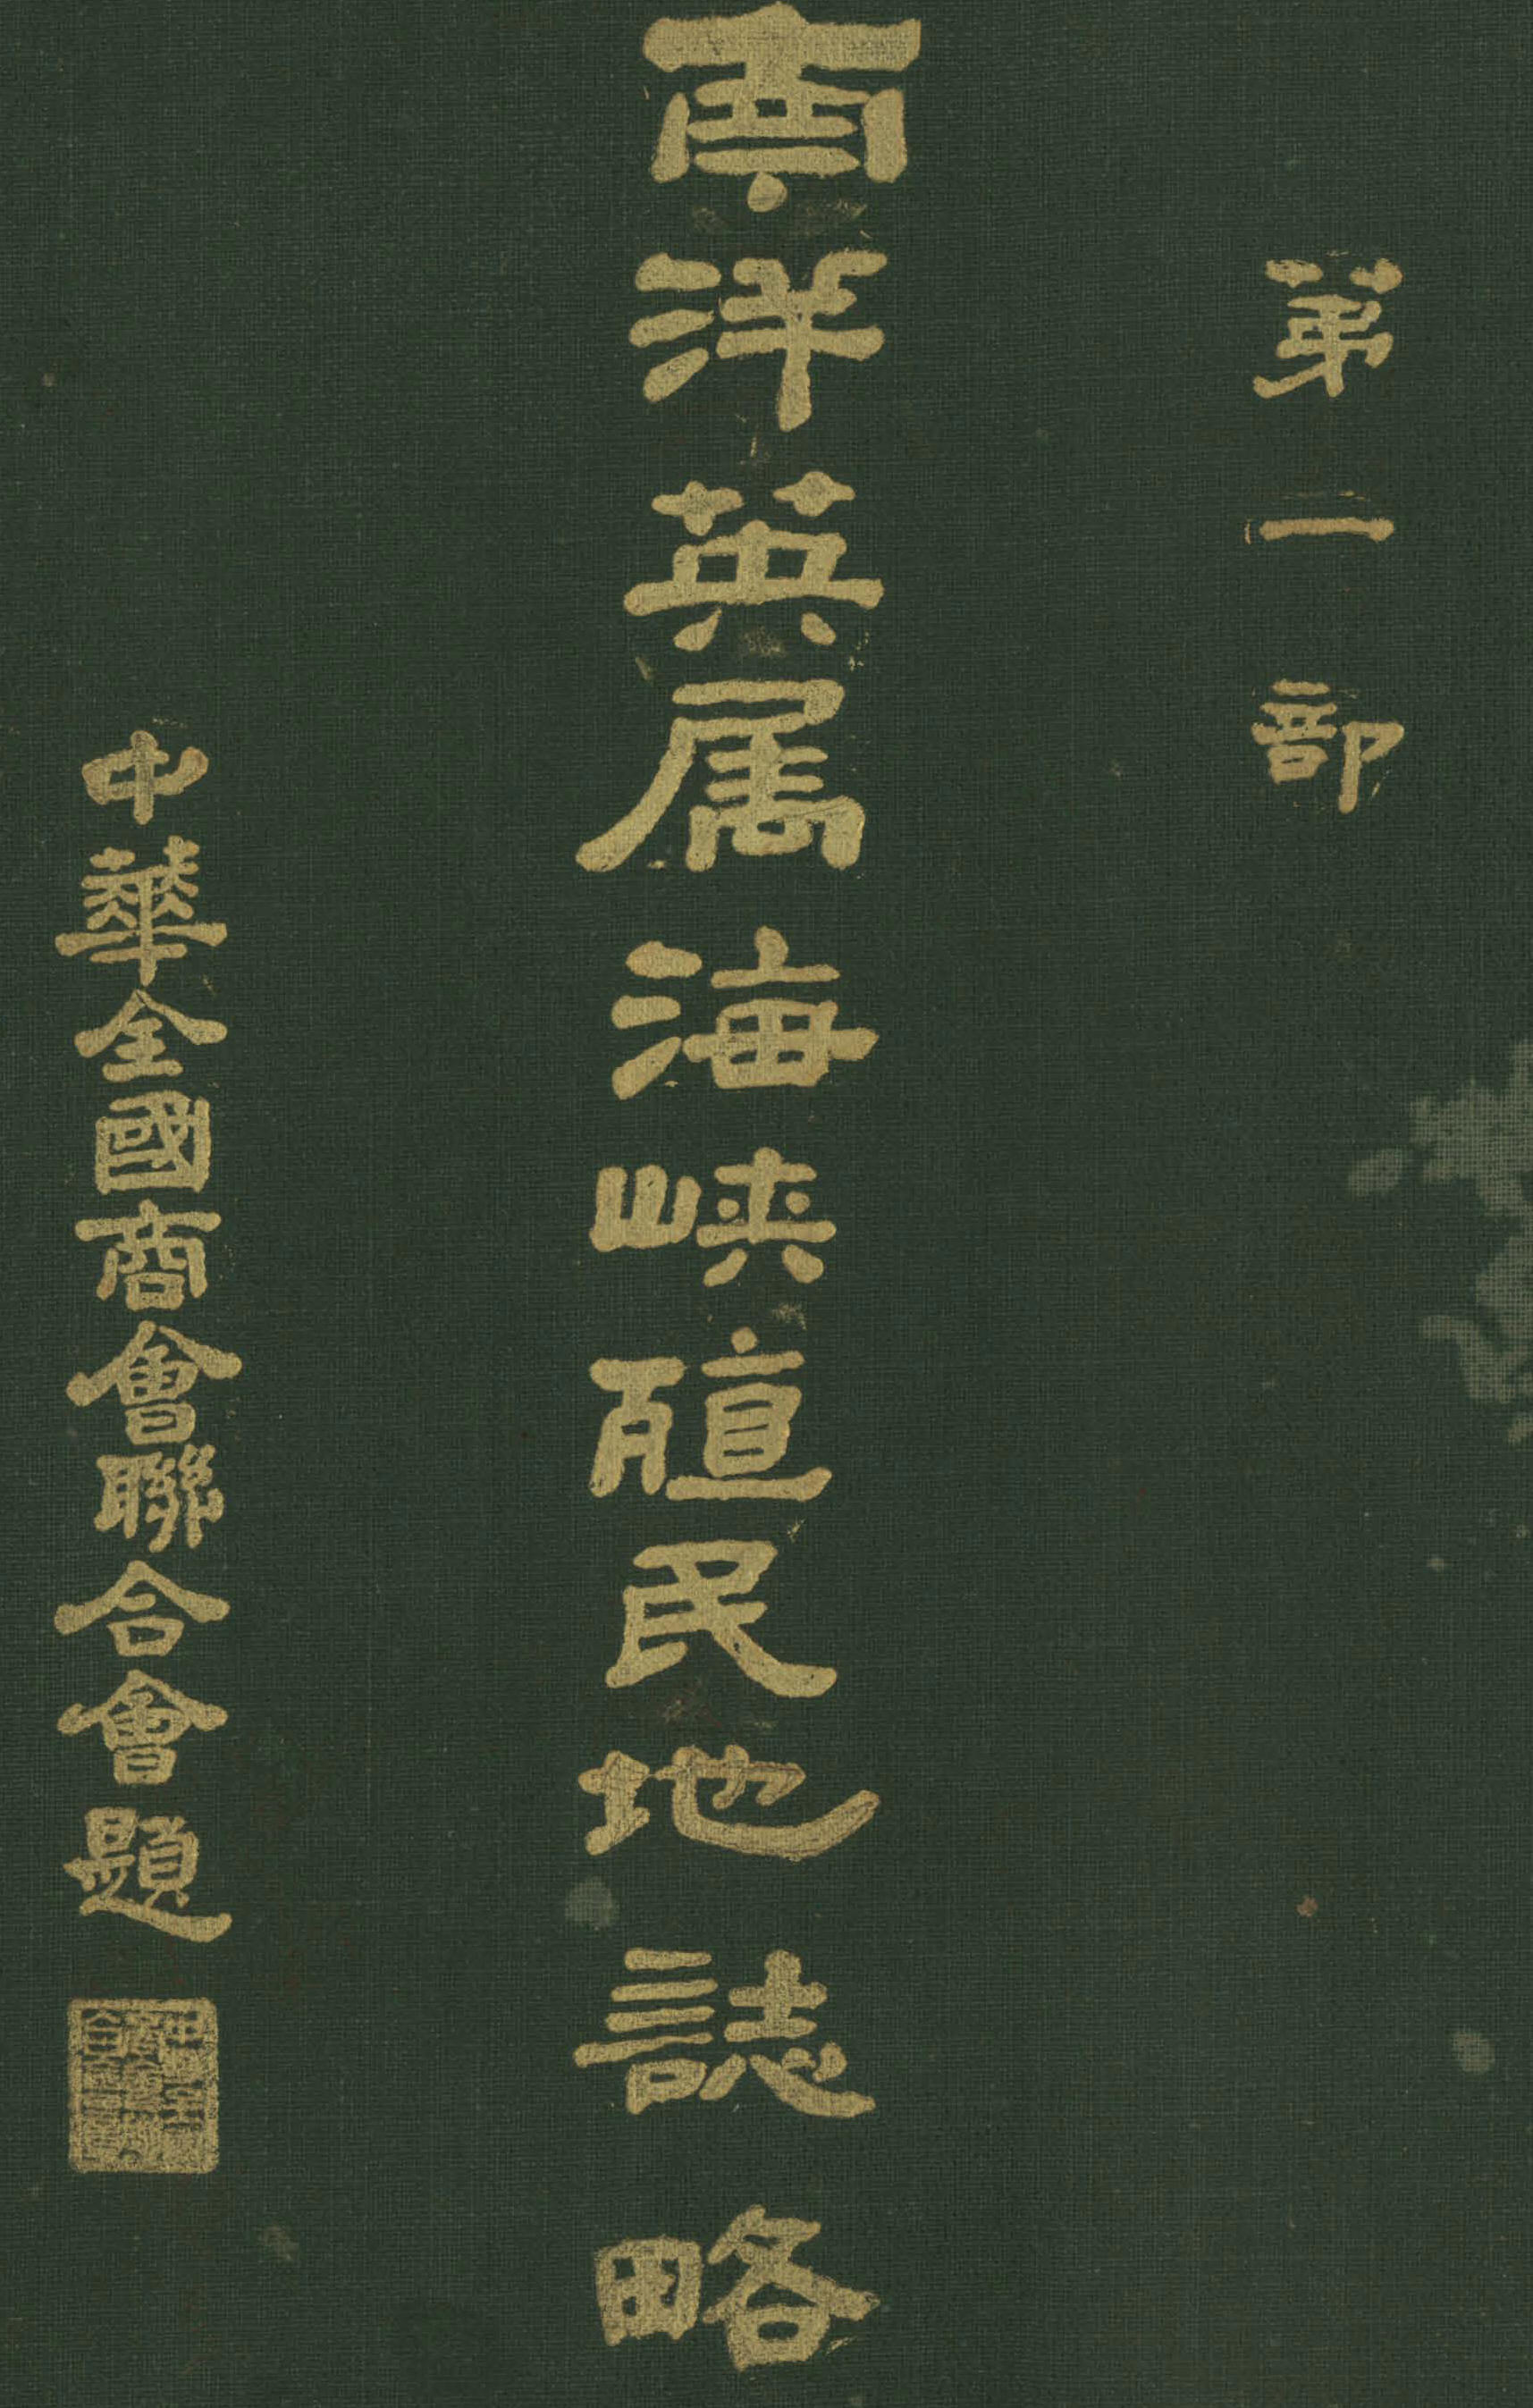 第一部
南洋英属海峽殖民地誌略
中華全國商會聯合會題